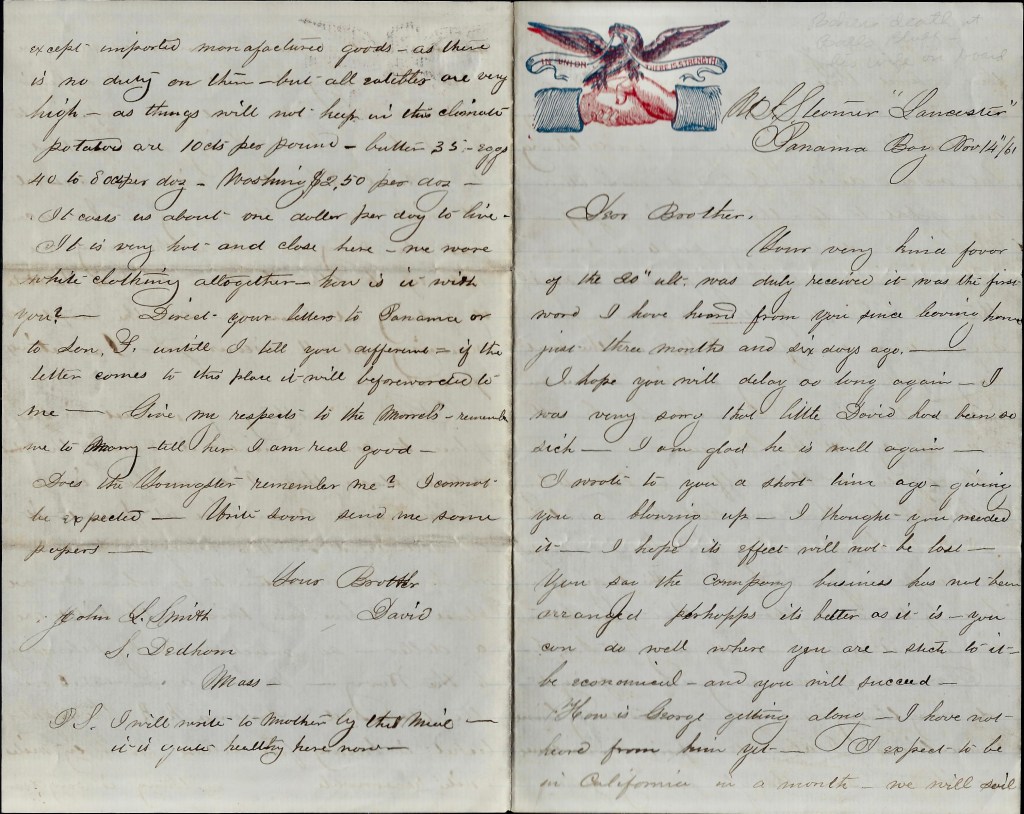 IN UNION THERE IS STRENGTH
U S Steamer "Lancaster"
Panama Bay Nov 14"/61
Dear Brother.
Your very kind favor
of the 20" ult. was duly received it was the first
word I have heard from you since leaving home
just three months and six days ago. —
I hope you will delay as long again — I
was very sorry that little David had been so
sick — I am glad he is well again —
I wrote to you a short time ago — giving
you a blowing up — I thought you needed
it — I hope its effect will not be lost —
You say the company business has not been
arranged perhapps its better as it is — you
can do well where you are — stick to it —
be economical — and you will succeed —
How is George getting along — I have not
heard from him yet — I expect to be
in California in a month — we will sail
except imported manafactured goods — as there
is no duty on them — but all eatibles are very
high — as things will not keep in this climate
potatoes are 10cts per pound — butter 35 — eggs
40 to 80cts per doz — Washing $2,50 per doz —
It costs us about one doller per day to live —
It is very hot and close here — we ware
white clothing altogether — how is it with
you? — Direct your letters to Panama or
to San. F. untill I tell you different = if the
letter comes to this place it will be forewarded to
me — Give my respects to the Morrels — remember
me to Mary — tell her I am real good —
Does the Youngster remember me? I cannot
be expected — Write soon send me some
papers —
Your Brother
David
John L. Smith
S. Dedham
Mass —
P.S. I will write to Mother by this Mail —
it is quite healthy here now —